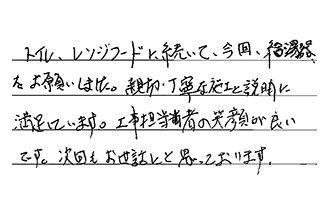 トイレ、レンジフードに続いて、今回、給湯器
をお願いしました。親切・丁寧な施工と説明に
満足しています。工事担当者の笑顔が良い
です。次回もお世話にと思っております。